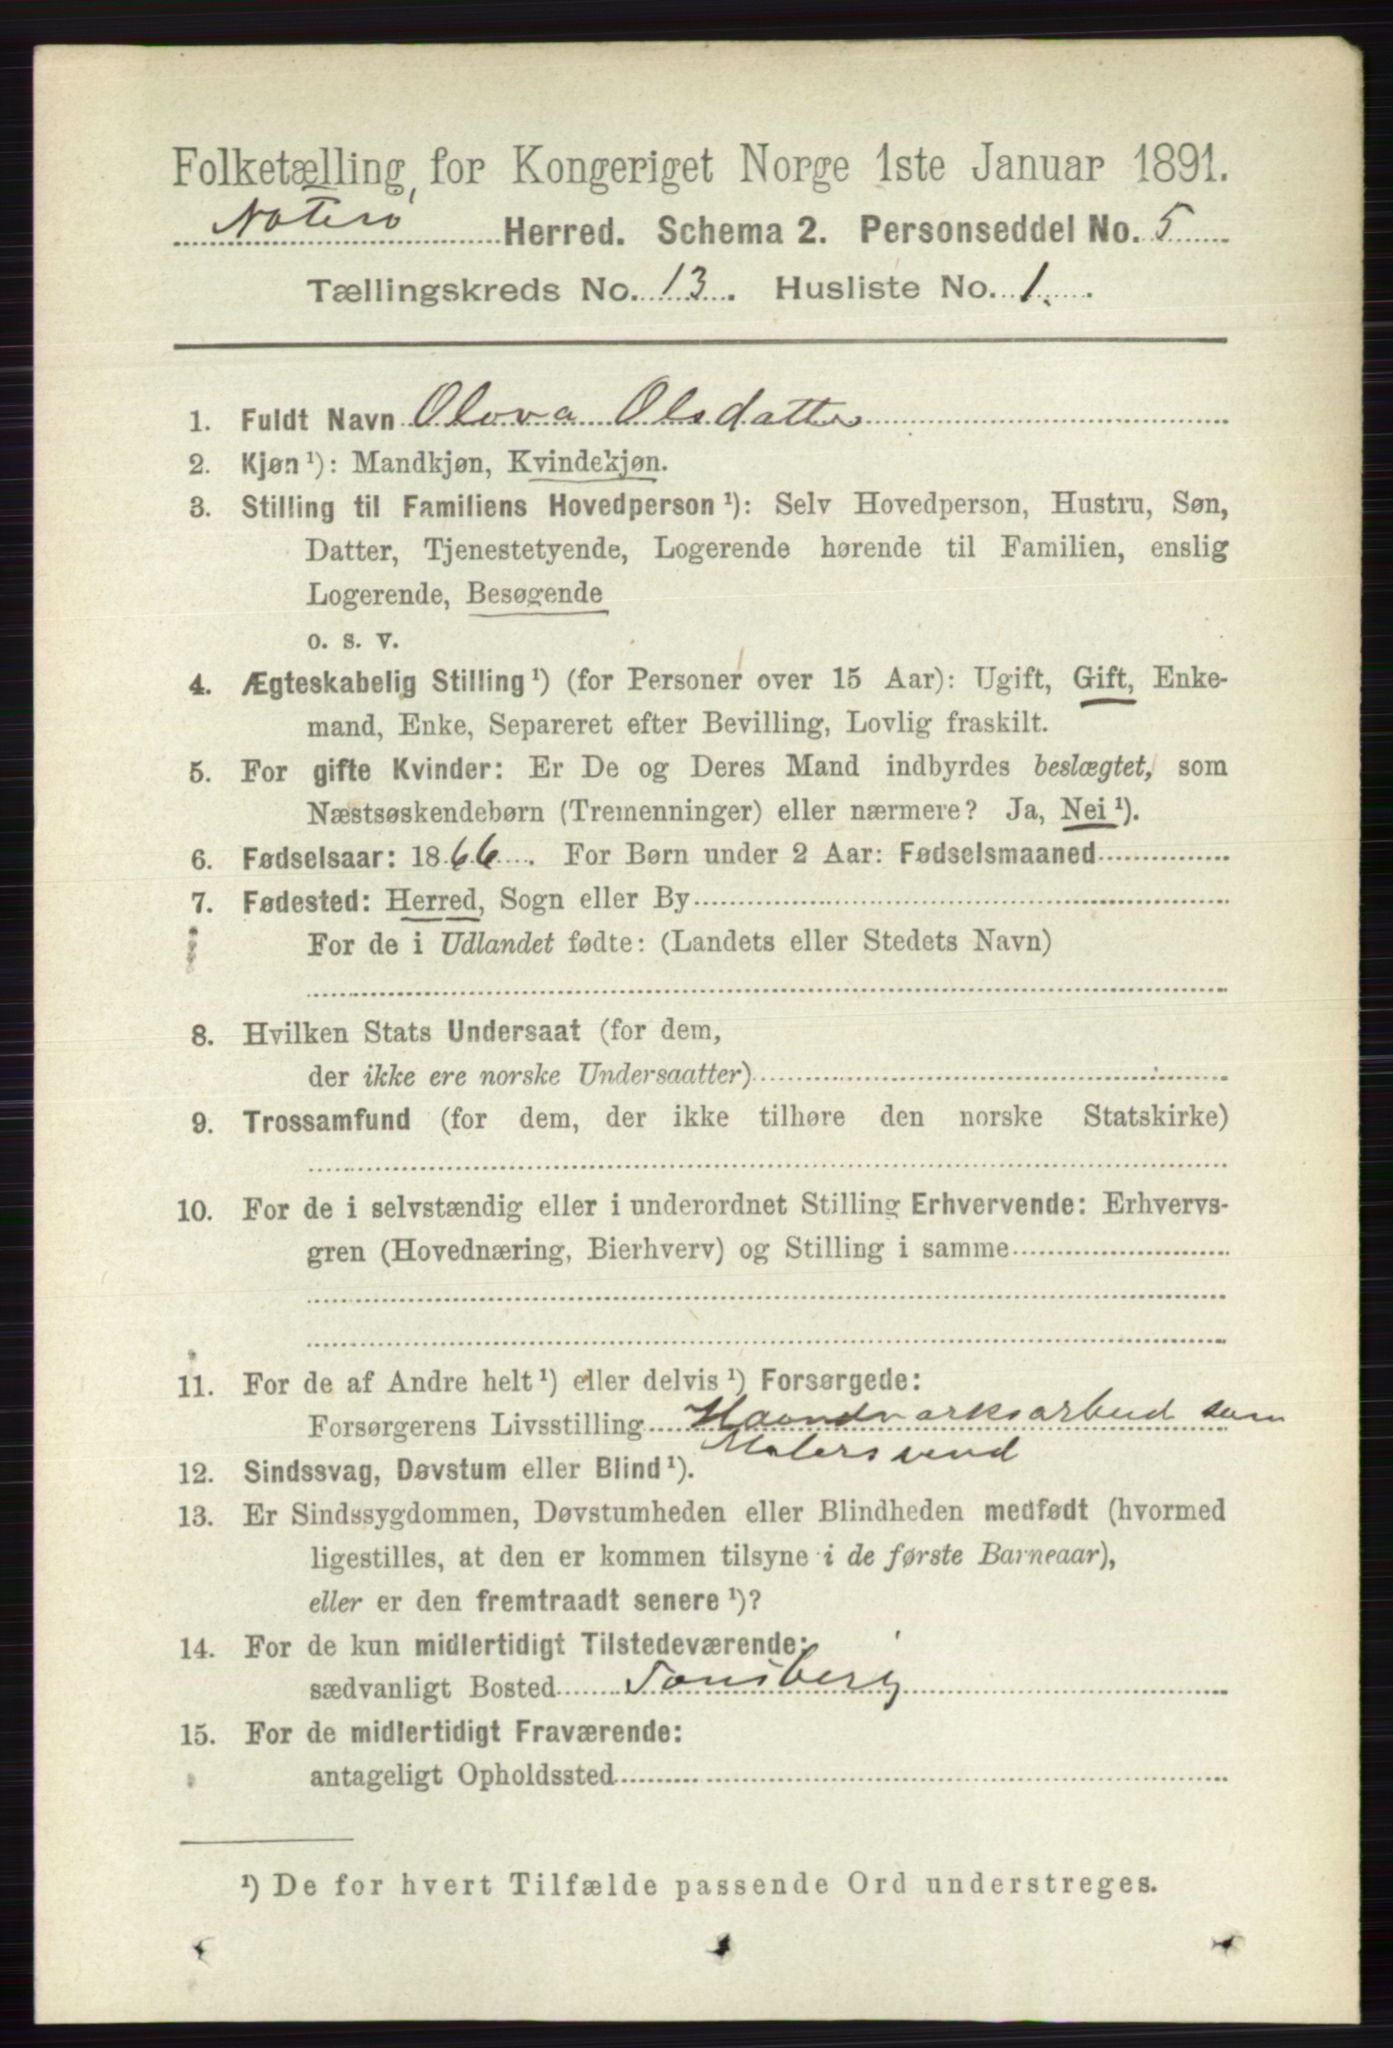 Folketælling for Kongeriget Norge 1ste Januar 1891.
Nøterø Herred. Schema 2. Personseddel No. 5
Tællingskreds No. 13. Husliste No. 1.
1. Fuldt Navn Olova Olsdatter
2. Kjøn ¹): Mandkjøn, Kvindekjøn.
3. Stilling til Familiens Hovedperson ¹): Selv Hovedperson, Hustru, Søn,
Datter, Tjenestetyende, Logerende hørende til Familien, enslig
Logerende, Besøgende
o. s. v.
4. Ægteskabelig Stilling ¹) (for Personer over 15 Aar): Ugift, Gift, Enke-
mand, Enke, Separeret efter Bevilling, Lovlig fraskilt.
5. For gifte Kvinder: Er De og Deres Mand indbyrdes beslægtet, som
Næstsøskendebørn (Tremenninger) eller nærmere? Ja, Nei ¹).
6. Fødselsaar: 1866. For Børn under 2 Aar: Fødselsmaaned
7. Fødested: Herred, Sogn eller By
For de i Udlandet fødte: (Landets eller Stedets Navn)
8. Hvilken Stats Undersaat (for dem,
der ikke ere norske Undersaatter)
9. Trossamfund (for dem, der ikke tilhøre den norske Statskirke)
10. For de i selvstændig eller i underordnet Stilling Erhvervende: Erhvervs-
gren (Hovednæring, Bierhverv) og Stilling i samme
11. For de af Andre helt ¹) eller delvis ¹) Forsørgede:
Forsørgerens Livsstilling Haandværksarbeid som
Malersvend
12. Sindssvag, Døvstum eller Blind ¹).
13. Er Sindssygdommen, Døvstumheden eller Blindheden medfødt (hvormed
ligestilles, at den er kommen tilsyne i de første Barneaar),
eller er den fremtraadt senere ¹)?
14. For de kun midlertidigt Tilstedeværende:
sædvanligt Bosted Tønsberg
15. For de midlertidigt Fraværende:
antageligt Opholdssted
¹) De for hvert Tilfælde passende Ord understreges.